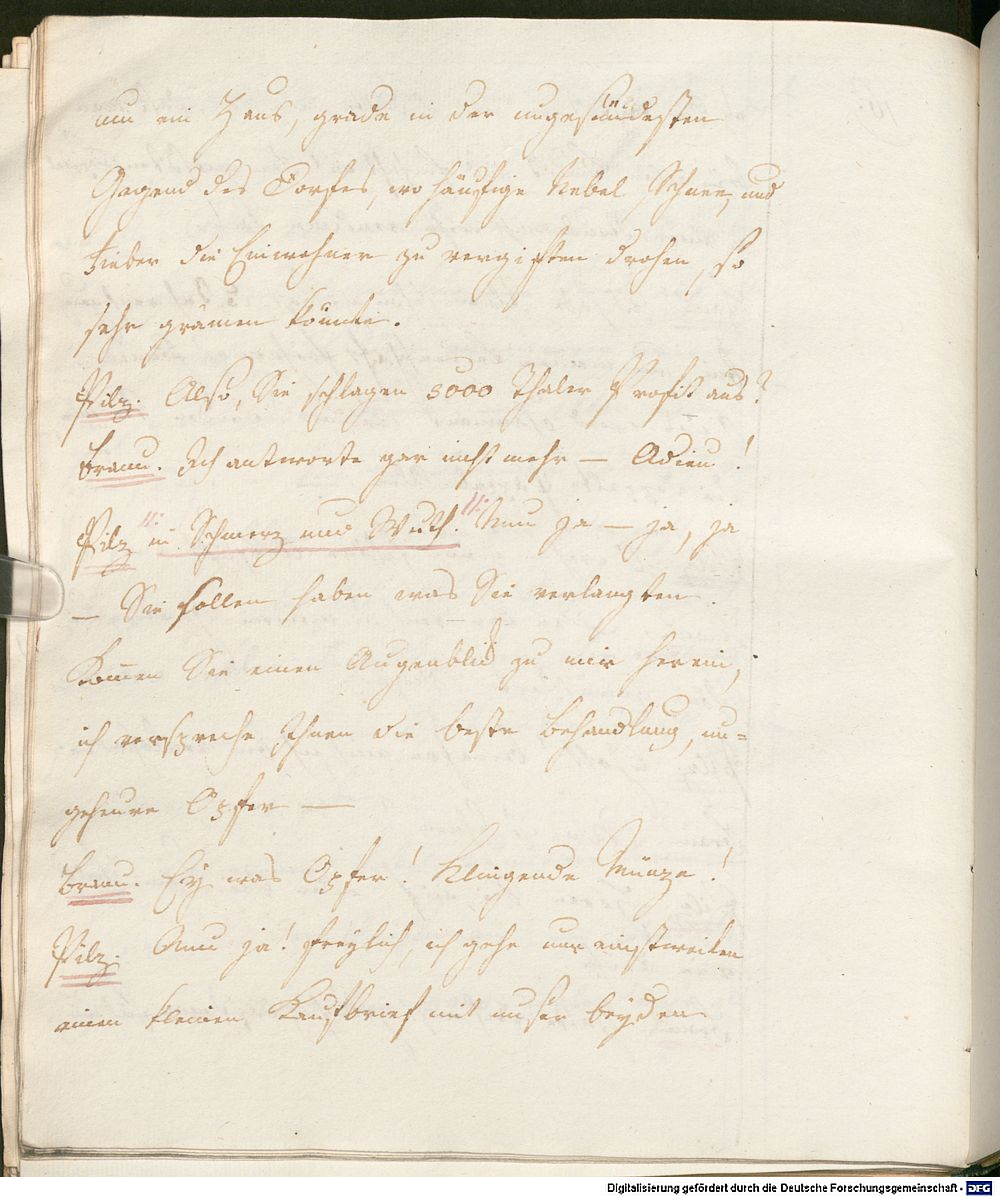 um ein Haus, grade in der ungesündesten
Gegend des Dorfes, wo häuffige Nebel Schnee, und
Fieber die Einwohner zu vergiften drohen, so
sehr grämen könnte.
Pilz. Also, Sie schlagen 5000 Thaler Profit aus?
Braun. Ich antworte gar nicht mehr — Adieu!
Pilz in Schmerz und Wuth. Nun ja — ja, ja
— Sie sollen haben was Sie verlangten.
Kom̅en Sie einen Augenblick zu mir herein,
ich verspreche Ihnen die beste Behandlung, un=
geheure Opfer —
Braun. Ey was Opfer! Klingende Münze!
Pilz. Nun ja! freylich, ich gehe nur einstweilen
einen kleinen Kaufbrief mit unser beyden
Digitalisierung gefördert durch die Deutsche Forschungsgemeinschaft - DFG